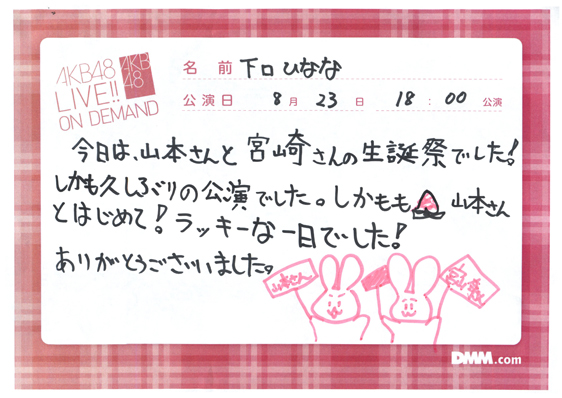 AKB48
LIVE!!
ON DEMAND
AKB
48
名 前 下口ひなな
公演日 8月 23日 18:00 公演
今日は、山本さんと宮崎さんの生誕祭でした!
しかも久しぶりの公演でした。しかもも 山本さん
とはじめて!ラッキーな一日でした!
ありがとうございました。
山本さん
宮崎さん
DMM.com